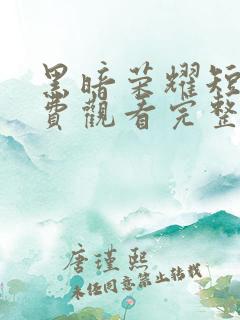 黑暗荣耀短
費觀看完整
唐瑾熙
未经同意禁止转载